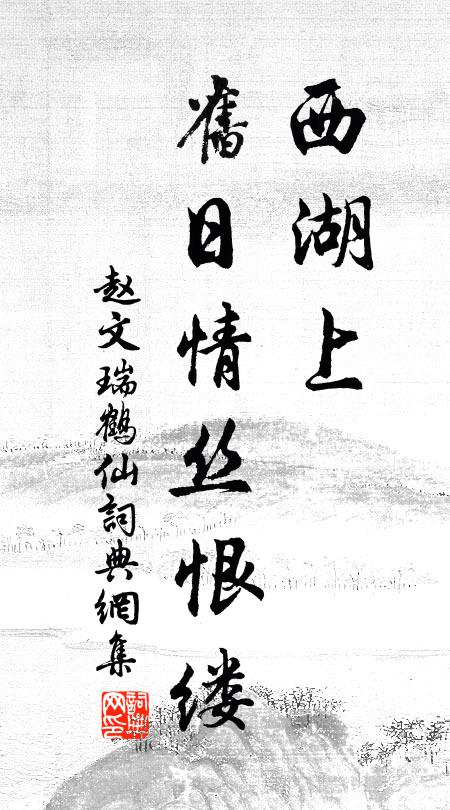 西湖上
舊日情丝恨缕
赵文瑞鹤仙詞典網集